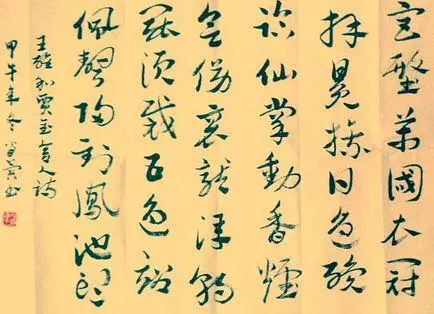 宫殿萬國衣冠
拜冕旒日色纔
臨仙掌動香煙
欲傍袞龍浮朝
罷須裁五色詔
佩聲歸到鳳池頭
王維和賈至舍人詩
甲午年冬